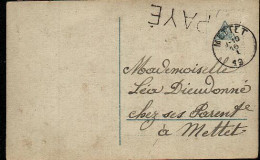 PAYÉ
METTET
10
19
Mademoiselle
Léa Dieudonné
chez ses Parents
à Mettet